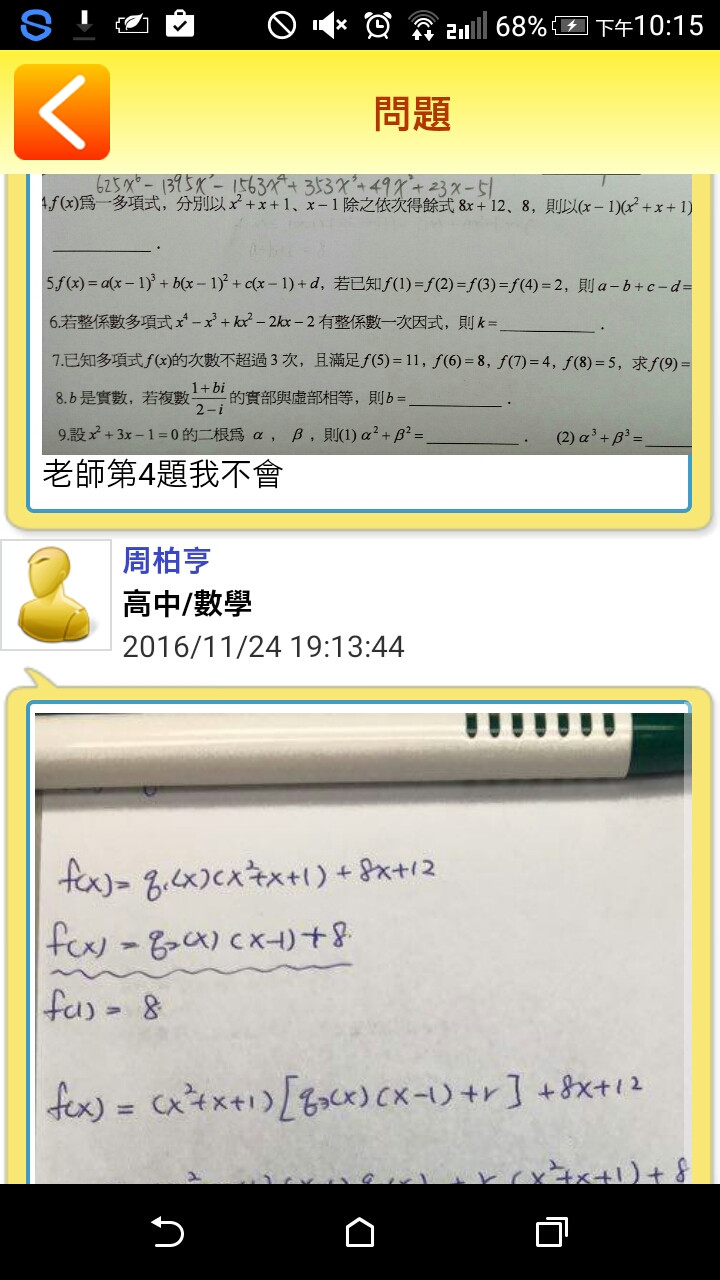 68% 下午10:15
問題
625x⁶ - 1395x⁵ - 1563x⁴ + 353x³ + 49x² + 23x - 51
4.f(x)為一多項式，分別以 x² + x + 1、x − 1 除之依次得餘式 8x + 12、8，則以(x − 1)(x² + x + 1)
________．
5.f(x) = a(x − 1)³ + b(x − 1)² + c(x − 1) + d，若已知 f(1) = f(2) = f(3) = f(4) = 2，則 a − b + c − d =
6.若整係數多項式 x⁴ − x³ + kx² − 2kx − 2 有整係數一次因式，則 k = ________．
7.已知多項式 f(x)的次數不超過 3 次，且滿足 f(5) = 11，f(6) = 8，f(7) = 4，f(8) = 5，求 f(9) =
8.b 是實數，若複數 (1 + bi)/(2 − i) 的實部與虛部相等，則 b = ________．
9.設 x² + 3x − 1 = 0 的二根為 α ， β ，則(1) α² + β² = ________． (2) α³ + β³ = ____
老師第4題我不會
周柏亨
高中/數學
2016/11/24 19:13:44
f(x) = q₁(x)(x²+x+1) + 8x+12
f(x) = q₂(x)(x-1) + 8
f(1) = 8
f(x) = (x²+x+1)[q₃(x)(x-1)+r] + 8x+12
r(x²+x+1) + 8